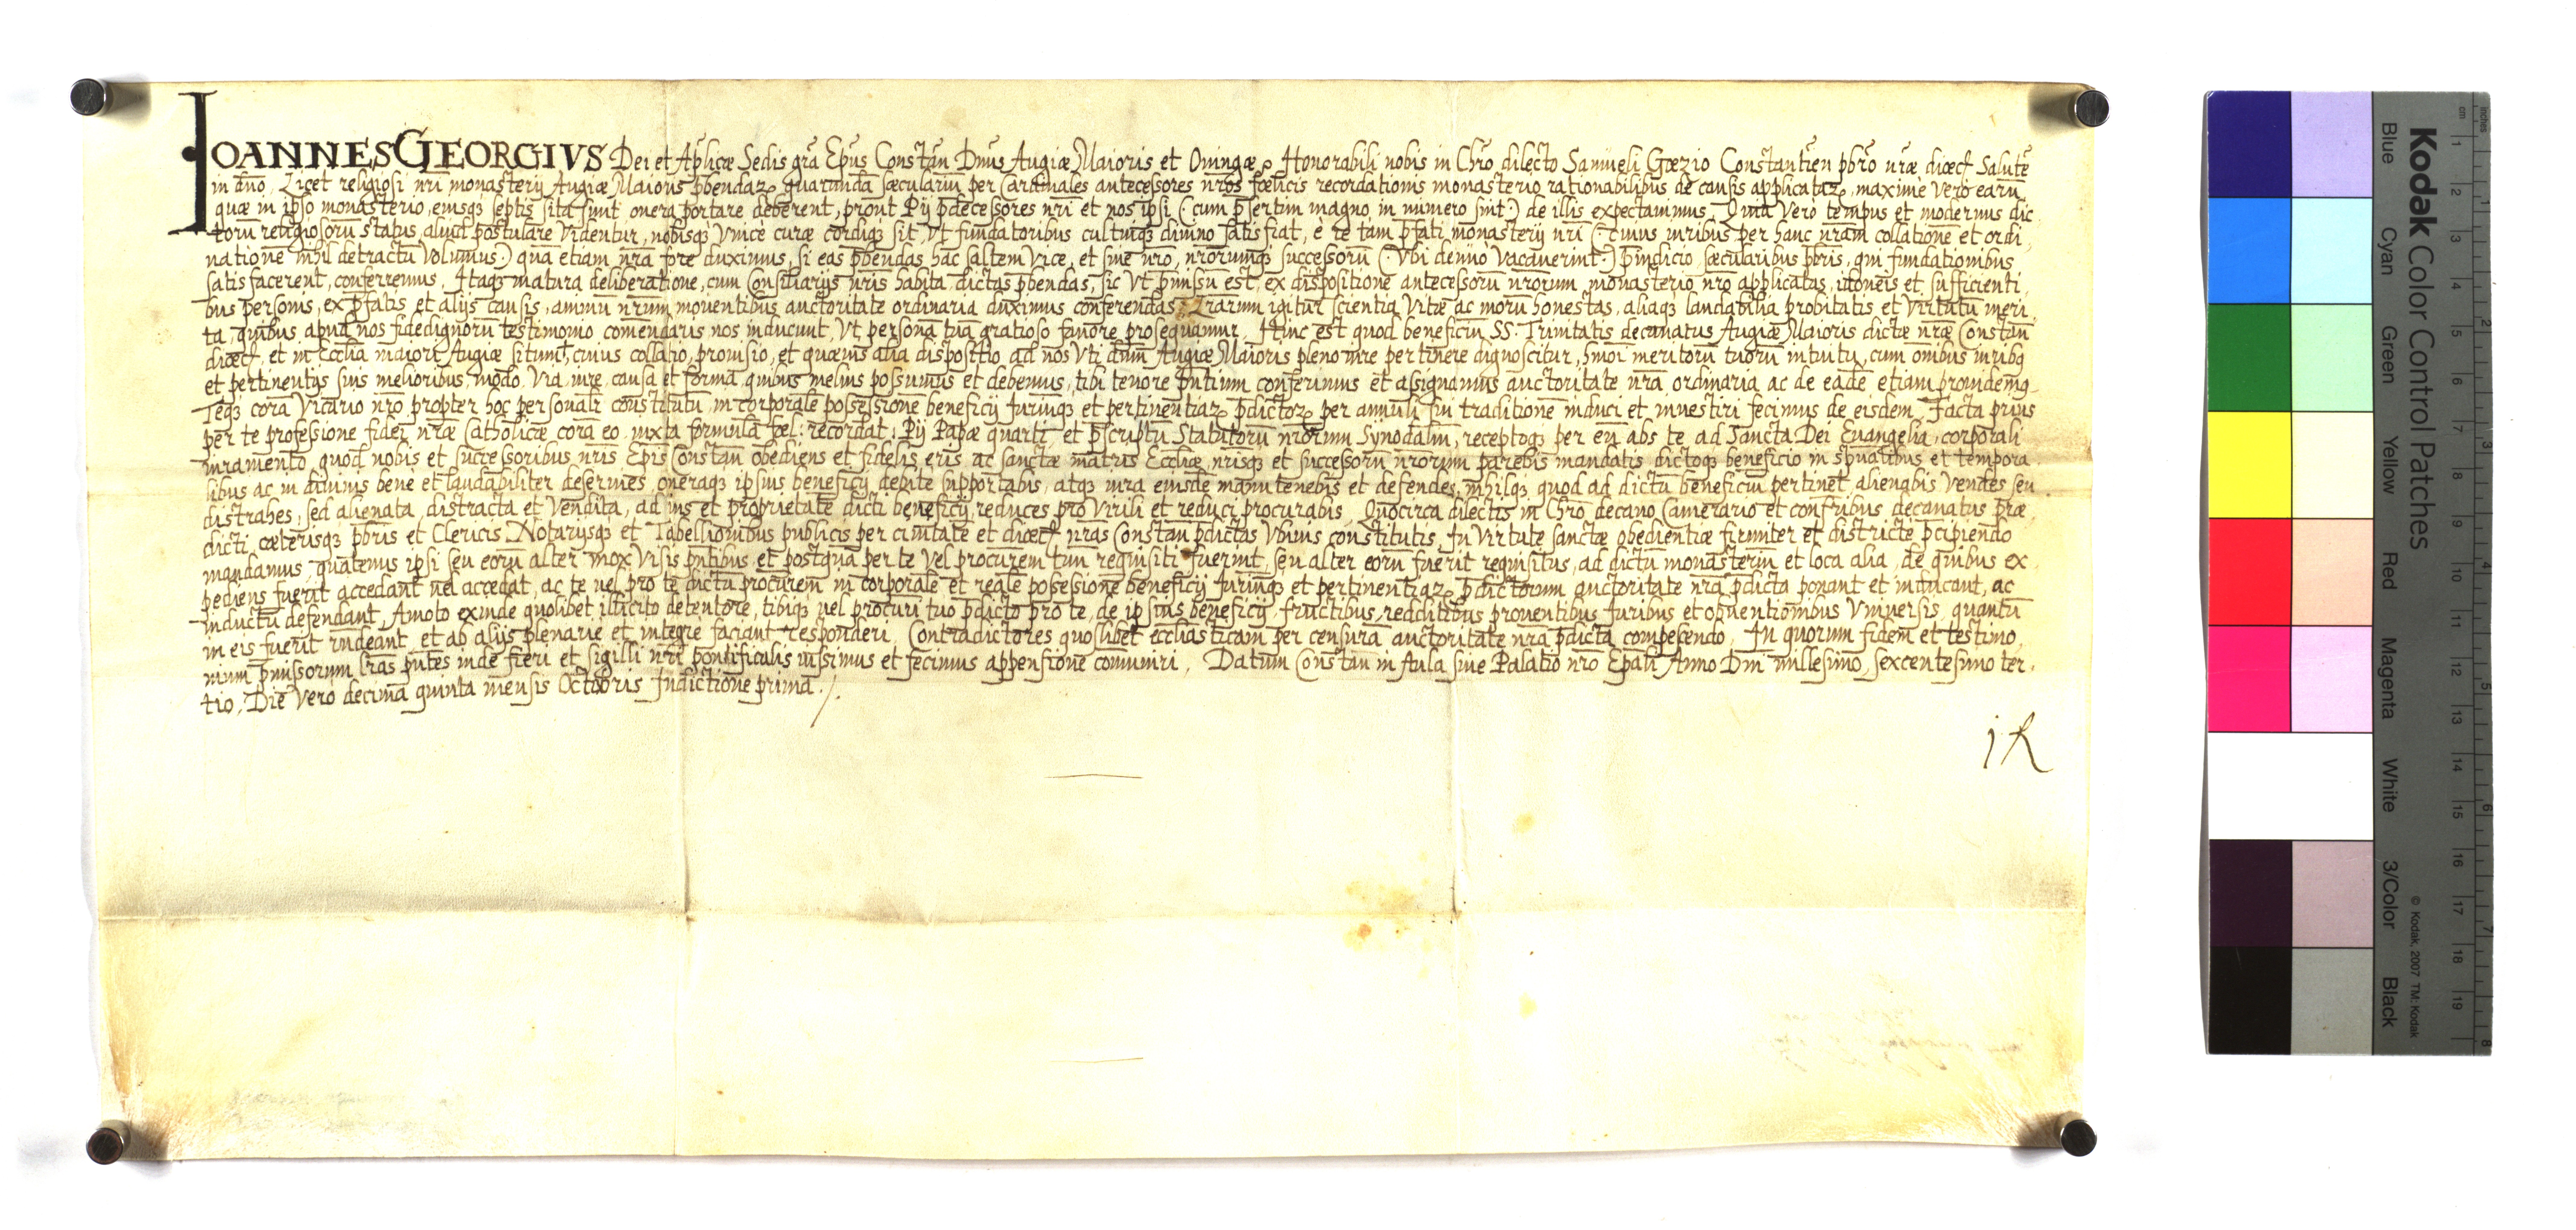 IOANNES GEORGIVS Dei et Aplicæ Sedis gra Epus Constan Dnus Augiæ Maioris et Oningæ Honorabili nobis in Chro dilecto Samueli Gœzio Constantien pbro nræ diœc Salute
in dno. Licet religiosi nri monasterij Augiæ Maioris pbendaꝝ quarunda sæculariu per Cardinales antecessores nros fœlicis recordationis monasterio rationabilibus de causis applicataꝝ, maxime vero earu
quæ in ipso monasterio, eiusqꝫ septis sita sunt, onera portare deberent, prout Pij pdecessores nri et nos ipsi (: cum psertim magno in numero sint :) de illis expectamus. Quia vero tempus et modernus dic
toru religiosoru status, aliud postulare videntur, nobisqꝫ vnice curæ cordiqꝫ sit, vt fundatoribus cultuiqꝫ diuino satis fiat, e re tam pfati monasterij nri (: cuius iuribus per hanc nram collatione et ordi
natione nihil detractu volumus :) qua etiam nra fore duximus, si eas pbendas hac saltem vice, et sine nro, nrorumqꝫ successoru (: vbi denuo vacauerint :) piudicio sæcularibus pbris, qui fundationibus
satis facerent, conferremus. Itaqꝫ matura deliberatione, cum Consiliarijs nris habita dictas pbendas, sic vt pmissu est, ex dispositione antecessoru nrorum monasterio nro applicatas, idoneis et sufficienti
bus personis, ex pfatis et alijs causis, animu nrum mouentibus auctoritate ordinaria duximus conferendas. Lrarum igitur scientia vitæ ac moru honestas, aliaqꝫ laudabilia probitatis et virtutu meri
ta, quibus apud nos fidedignoru testimonio comendaris nos inducunt, vt persona tua gratioso fauore prosequamur. Hinc est quod beneficiu SS. Trinitatis decanatus Augiæ Maioris dictæ nræ Constan
diœc, et in Ecclia maiori Augiæ situm, cuius collatio, prouisio, et quæuis alia dispositio ad nos vti dnm Augiæ Maioris pleno iure pertinere dignoscitur, hmoi meritoru tuoru intuitu, cum omibus iuribꝫ
et pertinentijs suis melioribus, modo, via, iure, causa et forma quibus melius possumus et debemus, tibi tenore pntium conferimus et assignamus auctoritate nra ordinaria ac de eade etiam prouidemꝫ
Teqꝫ cora Vicario nro propter hoc personalr constitutu, in corporale possessione beneficij Iuriuqꝫ et pertinentiaꝝ pdictoꝝ per annuli sui traditione induci et inuestiri fecimus de eisdem. Facta prius
per te professione fidei nræ Catholicæ cora eo iuxta formula fœl: recordat: Pij Papæ quarti, et pscriptu Statutoru nrorum Synodaliu, receptoqꝫ per eu abs te ad Sancta Dei Euangelia, corporali
iuramento, quod nobis et successoribus nris Epis Constan obediens et fidelis eris ac sanctæ matris Eccliæ, nrisqꝫ et successoru nrorum parebis mandatis dictoqꝫ beneficio in spualibus et tempora
libus ac in diuinis bene et laudabiliter deseruies, oneraqꝫ ipsius beneficij debite supportabis, atqꝫ iura eiusde manutenebis et defendes, nihilqꝫ quod ad dictu beneficiu pertinet alienabis vendes seu
distrahes, sed alienata, distracta et vendita, ad ius et proprietate dicti beneficij reduces pro virili et reduci procurabis. Quocirca dilectis in Chro decano Camerario et confribus decanatus præ
dicti cæterisqꝫ pbris et Clericis, Notarijsqꝫ et Tabellionibus publicis per ciuitate et diœc nras Constan pdictas vbiuis constitutis, In virtute sanctæ obedientiæ firmiter et districte pcipiendo
mandamus, quatenus ipsi seu eoru alter mox visis pntibus et postqua per te vel procurem tuu requisiti fuerint, seu alter eoru fuerit requisitus, ad dictu monasteriu et loca alia, de quibus ex
pediens fuerit accedant uel accedat, ac te uel pro te dictu procurem in corporale et reale possessione beneficij Iuriuqꝫ et pertinentiaꝝ pdictorum auctoritate nra pdicta ponant et inducant, ac
inductu defendant, Amoto exinde quolibet illicito detentore, tibiqꝫ uel procuri tuo pdicto pro te, de ipsius beneficij fructibus, redditibus prouentibus Iuribus et obuentionibus vniuersis, quantu
in eis fuerit rndeant et ab alijs plenarie et integre faciant responderi. Contradictores quoslibet eccliasticam per censura auctoritate nra pdicta compescendo. In quorum fidem et testimo
nium pmissorum lras pntes inde fieri et sigilli nri pontificalis iussimus et fecimus appensione comuniri. Datum Constan in Aula siue Palatio nro Epali Anno Dni millesimo, sexcentesimo ter
tio, Die vero decima quinta mensis Octobris Indictione prima.
Kodak Color Control Patches
Blue Cyan Green Yellow Red Magenta White 3/Color Black
© Kodak, 2007 TM: Kodak
cm 1 2 3 4 5 6 7 8 9 10 11 12 13 14 15 16 17 18 19
inches 1 2 3 4 5 6 7 8